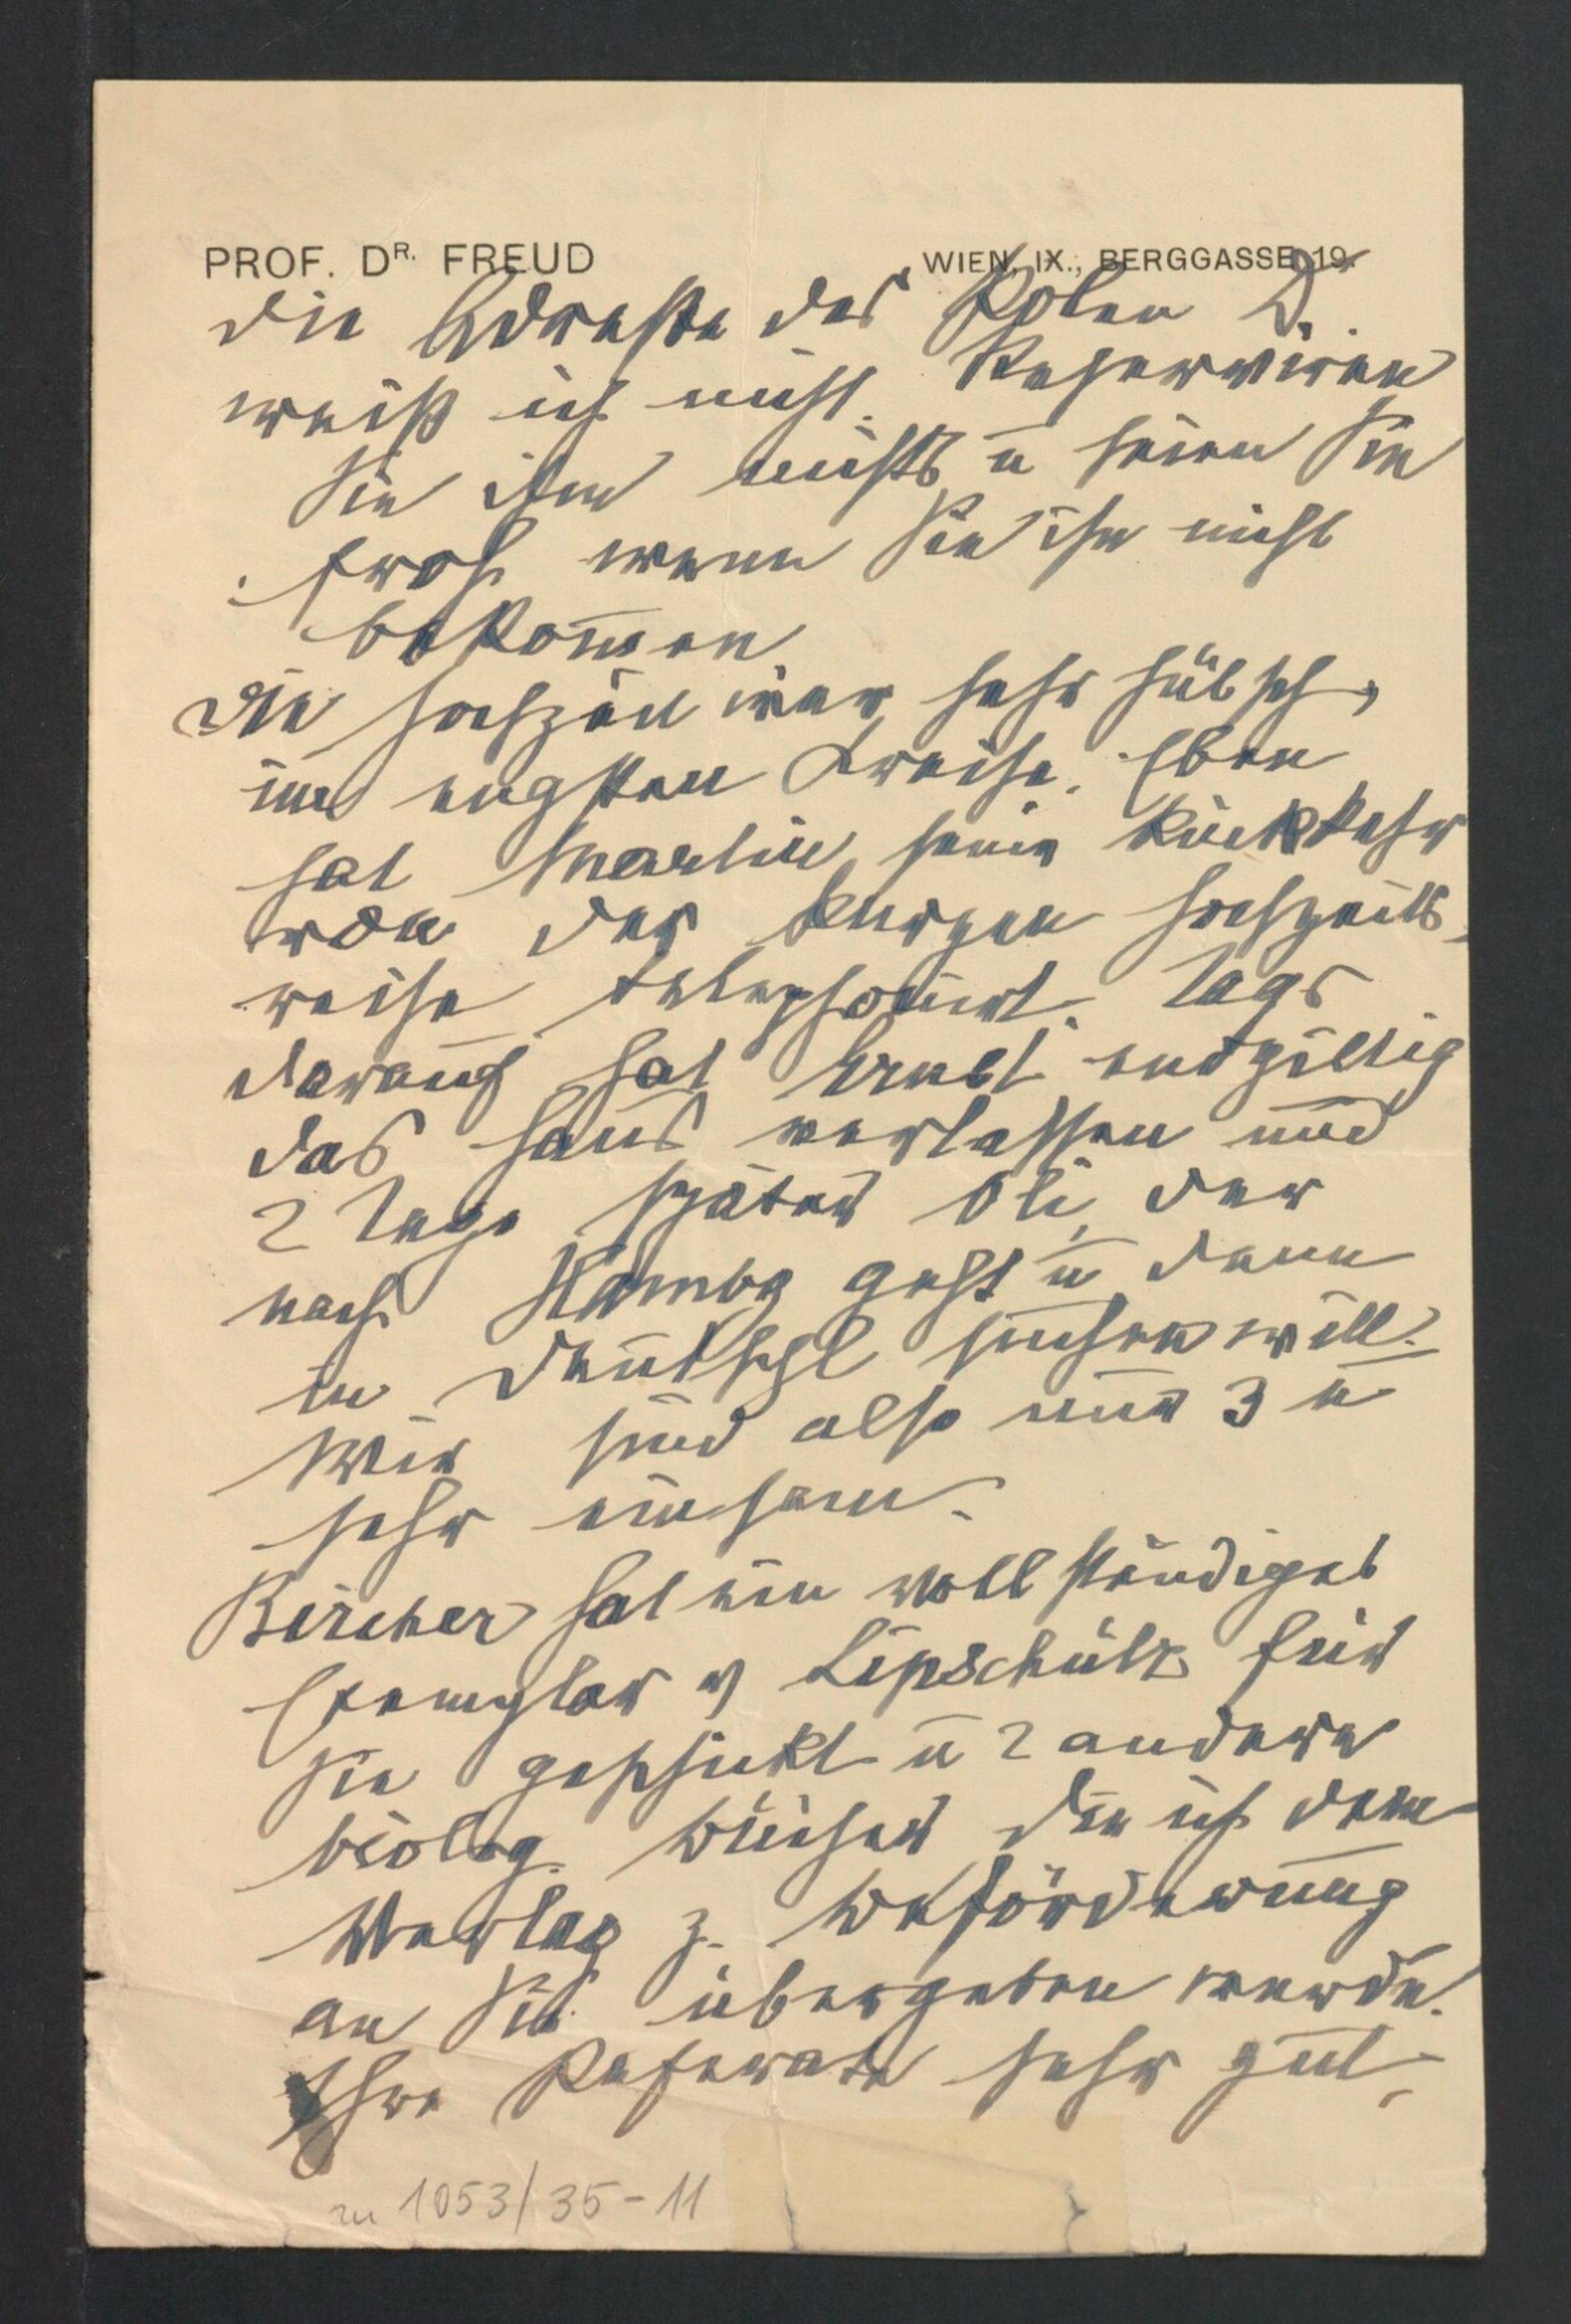 PROF. DR. FREUD WIEN, IX., BERGGASSE 19.
die Adresse des Polen D.
weiß ich nicht. Reserviren
Sie ihm nichts u seien Sie
froh wenn Sie ihn nicht
bekom̄en
Die Hochzeit war sehr hübsch,
im engsten Kreise. Eben
hat Martin seine Rückkehr
von der kurzen Hochzeits
reise telephonirt. Tags
darauf hat Ernst endgiltig
das Haus verlassen und
2 Tage später Oli, der
nach Hambg geht u dann
in Deutschl suchen will.
Wir sind also nur 3 u
sehr einsam.
Bircher hat ein vollständiges
Exemplar v Lipschütz für
Sie geschickt u 2 andere
biolog. Bücher die ich dem
Verlag z. Beförderung
an Sie übergeben werde.
Ihre Referate sehr gut.
zu 1053/35-11